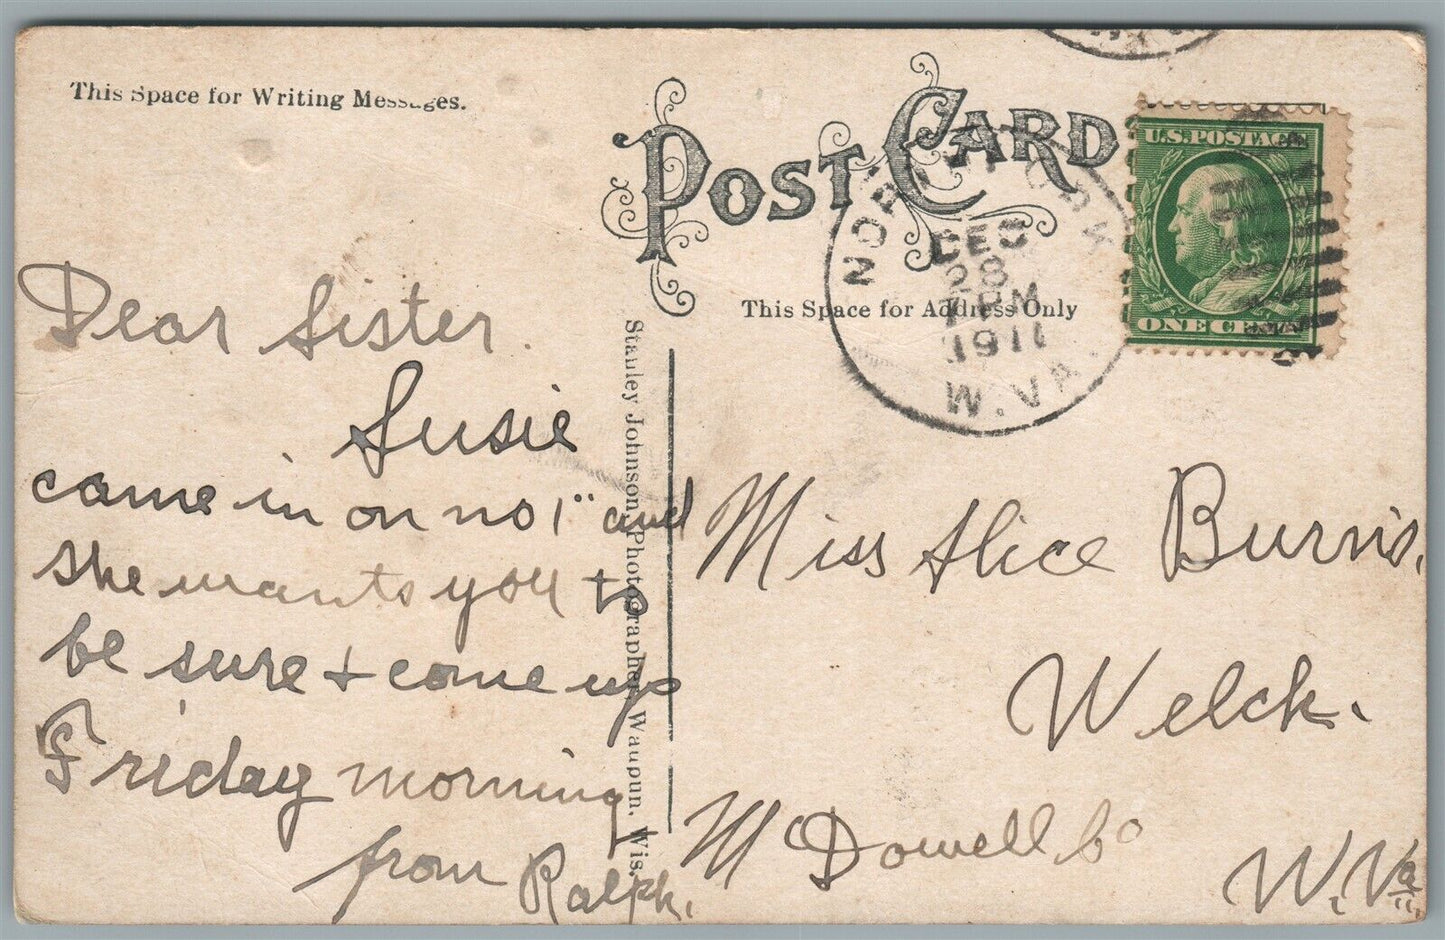 This Space for Writing Messages.
POST CARD
U.S. POSTAGE
ONE CENT
NORTH FORK
DEC
28
1 PM
1911
W. VA.
This Space for Address Only
Dear Sister.
Susie
came in on no 1" and
she wants you to
be sure + come up
Friday morning
from Ralph.
Stanley Johnson, Photographer, Waupun, Wis.
Miss Alice Burris,
Welch.
McDowell Co
W. Va